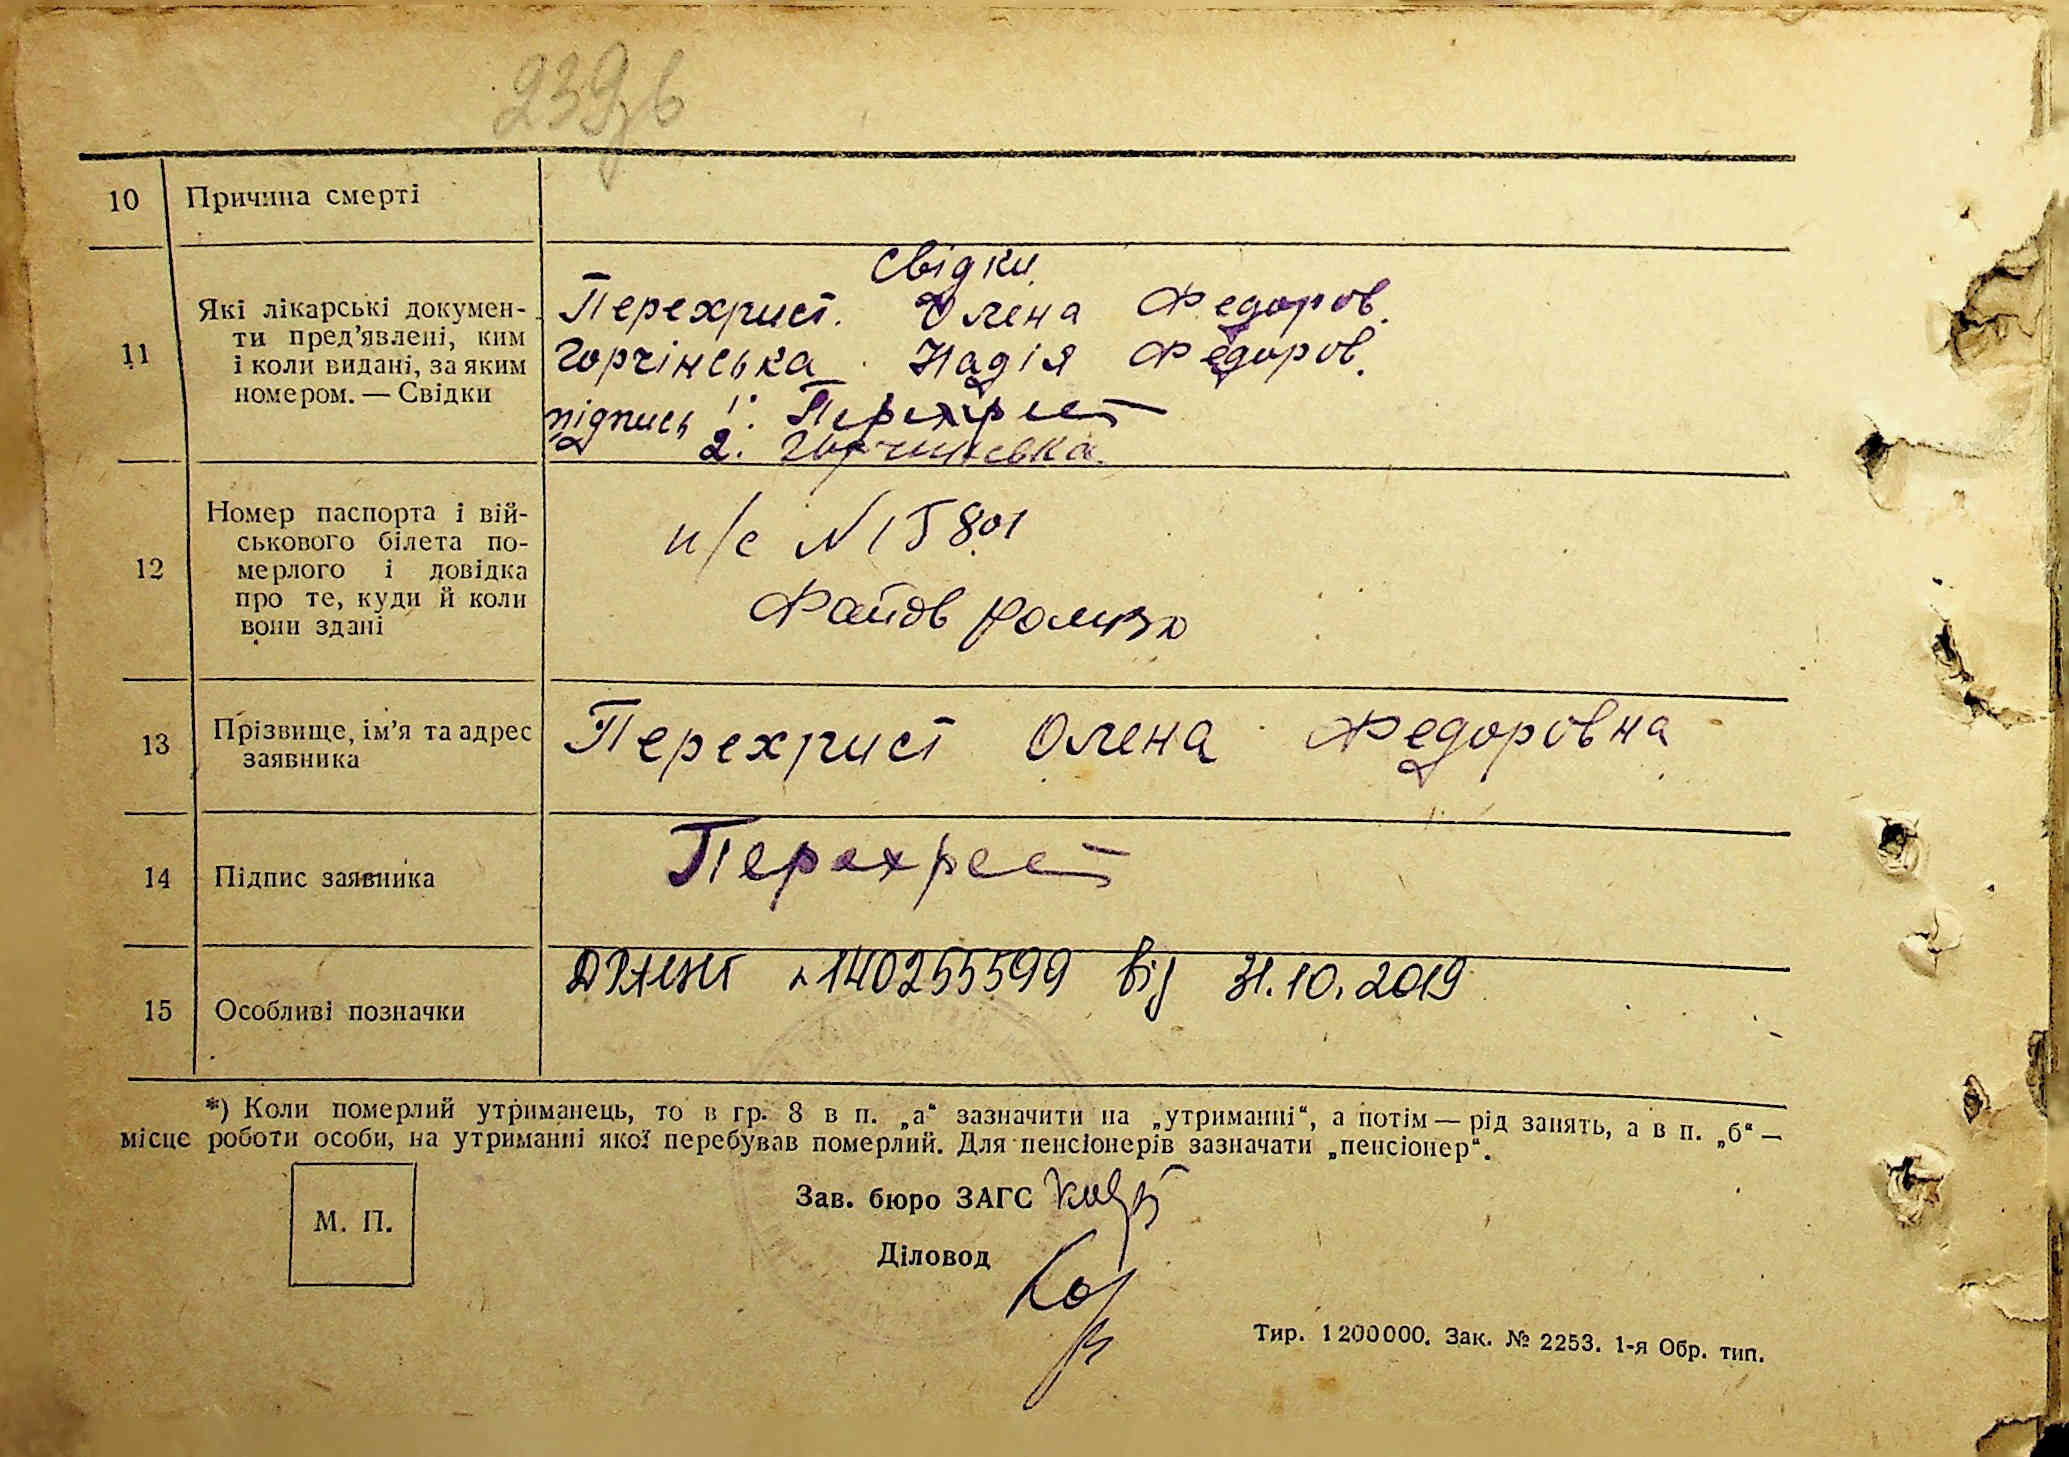 239зв
10 Причина смерті
11 Які лікарські докумен-
ти пред’явлені, ким
і коли видані, за яким
номером. — Свідки
Свідки
Перехрист. Олена Федоров.
Горчінська Надія Федоров.
підпись 1. Перехрест
2. Горчинська
12 Номер паспорта і вій-
ського білета по-
мерлого і довідка
про те, куди й коли
вони здані
п/с N 15801
13 Прізвище, ім’я та адрес
заявника
Перехрист Олена Федоровна
14 Підпис заявника
Перехрест
15 Особливі позначки
140255599 від 31.10.2019
*) Коли померлий утриманець, то в гр. 8 в п. „а“ зазначити на „утриманні“, а потім — рід занять, а в п. „б“ —
місце роботи особи, на утриманні якої перебував померлий. Для пенсіонерів зазначати „пенсіонер“.
М. П.
Зав. бюро ЗАГС
Діловод
Тир. 1200000. Зак. № 2253. 1-я Обр. тип.